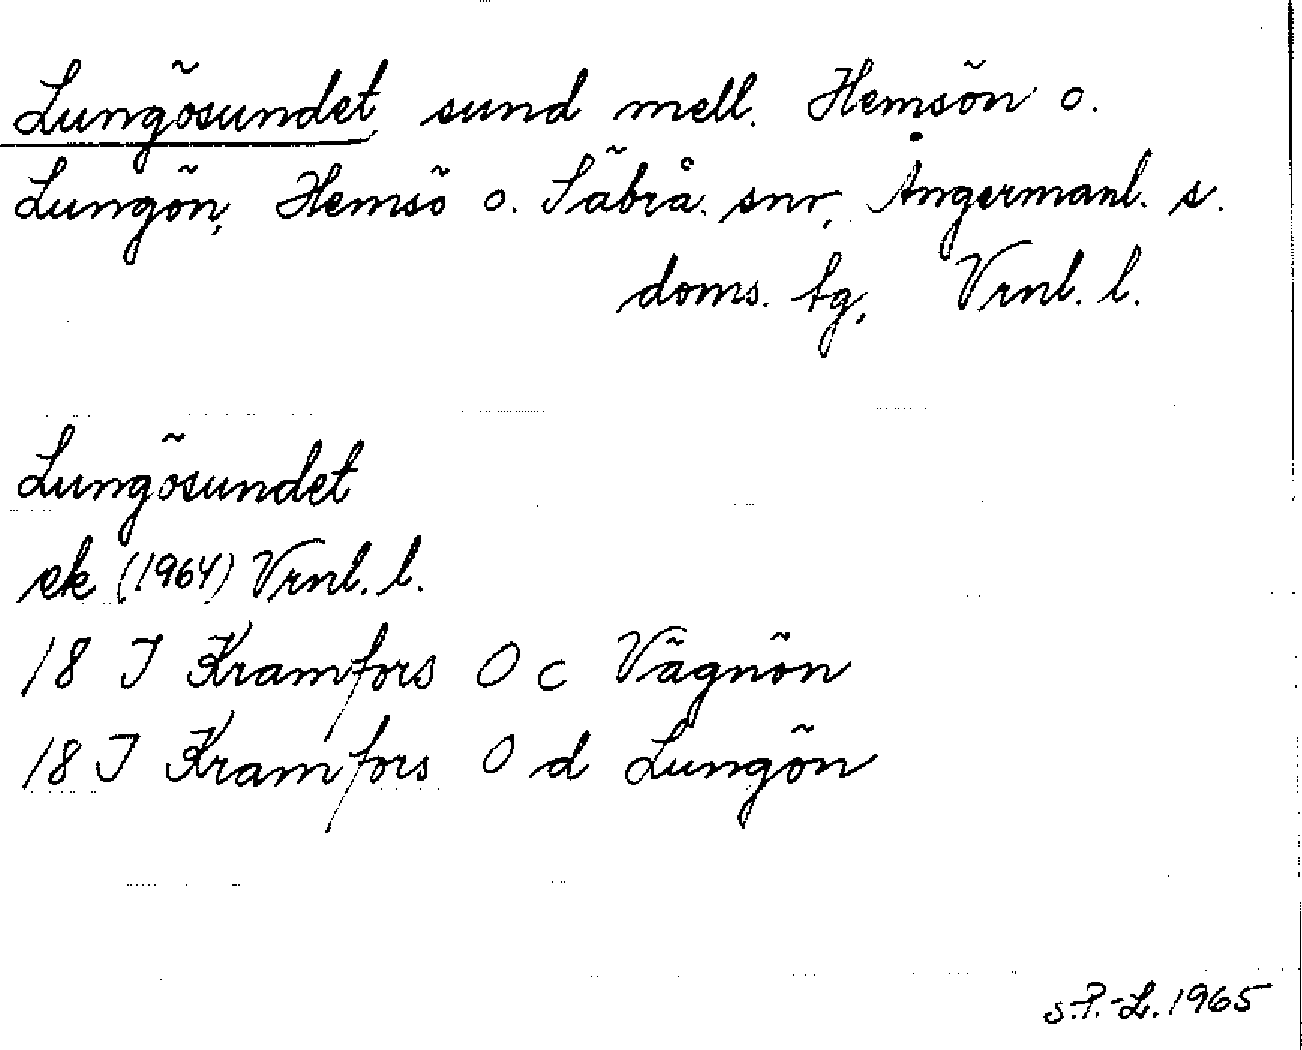 Lungösundet sund mell. Hemsön o.
Lungön, Hemsö o. Säbrå snr, Ångermanl. s.
doms. tg, Vrnl. l.
Lungösundet
ek (1964) Vrnl. l.
18 I Kramfors O c Vägnön
18 I Kramfors O d Lungön
S.P.-L. 1965